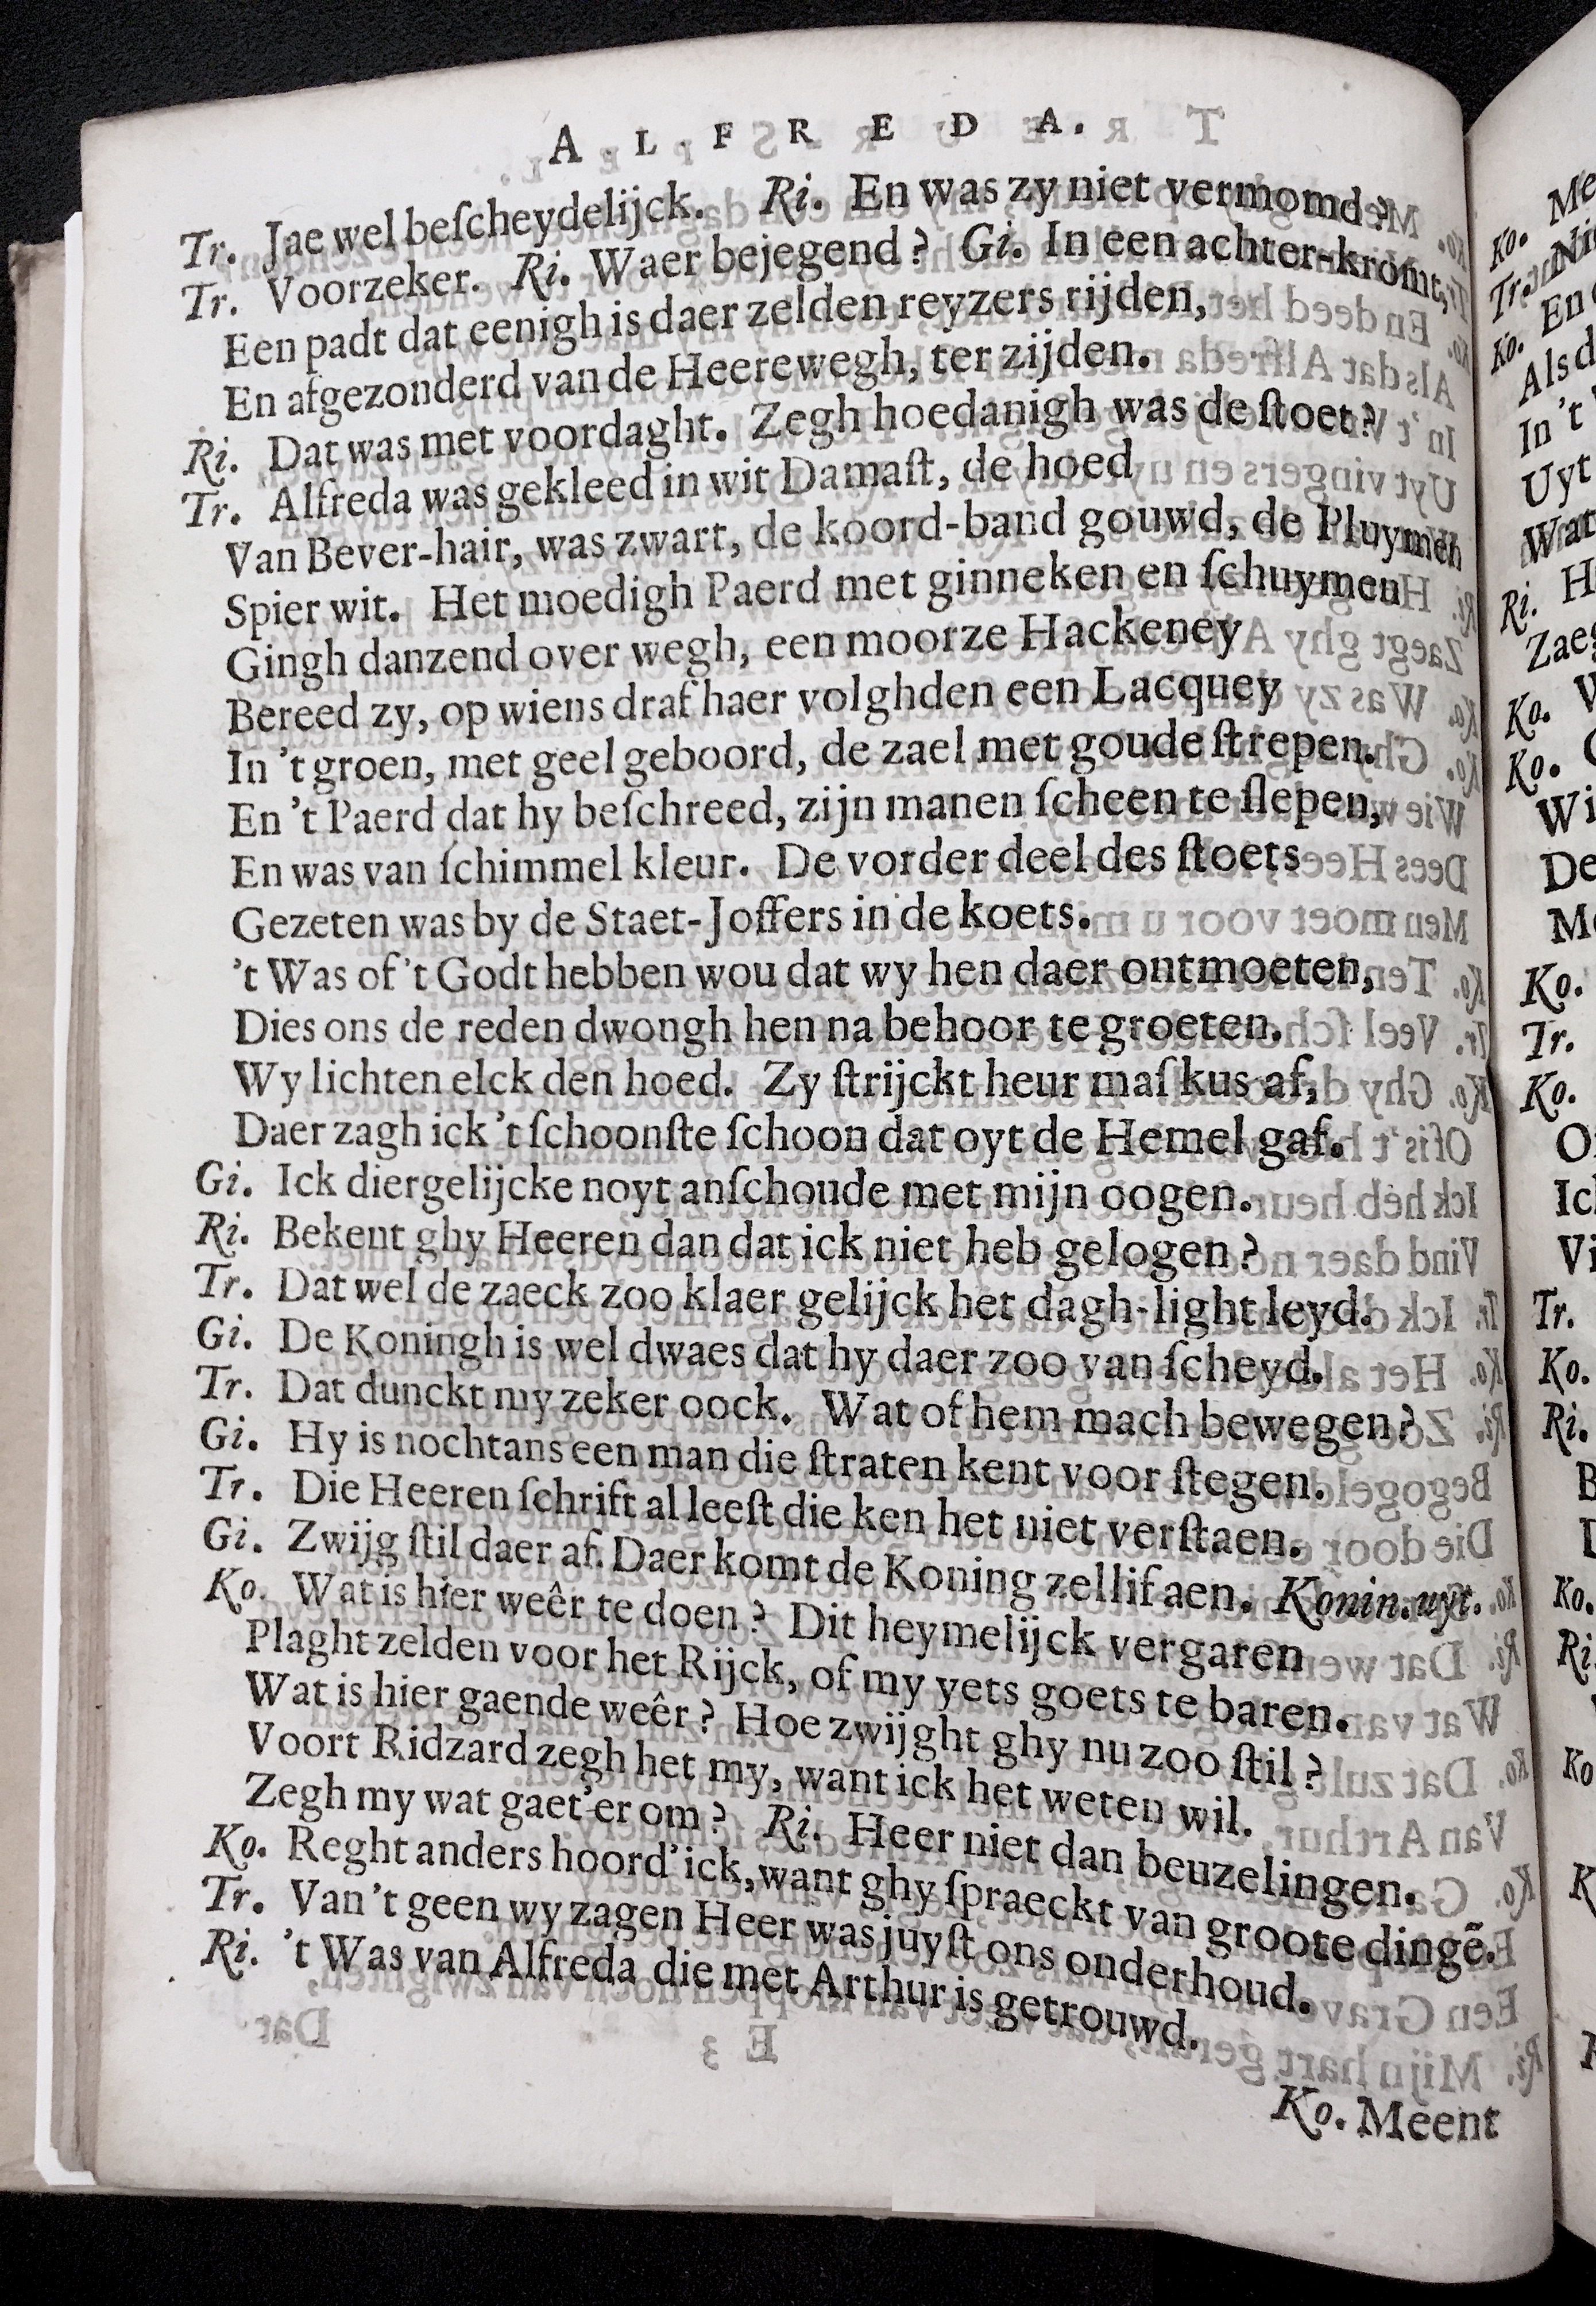 ALFREDA.
Tr. Jae wel beſcheydelijck. Ri. En was zy niet vermomd?
Tr. Voorzeker. Ri. Waer bejegend? Gi. In een achter-kromt,
Een padt dat eenigh is daer zelden reyzers rijden,
En afgezonderd van de Heerewegh, ter zijden.
Ri. Dat was met voordaght. Zegh hoedanigh was de ſtoet?
Tr. Alfreda was gekleed in wit Damaſt, de hoed
Van Bever-hair, was zwart, de koord-band gouwd, de Pluymen
Spier wit. Het moedigh Paerd met ginneken en ſchuymen
Gingh danzend over wegh, een moorze Hackeney
Bereed zy, op wiens draf haer volghden een Lacquey
In 't groen, met geel geboord, de zael met goude ſtrepen.
En 't Paerd dat hy beſchreed, zijn manen ſcheen te ſlepen,
En was van ſchimmel kleur. De vorder deel des ſtoets
Gezeten was by de Staet-Joffers in de koets.
't Was of 't Godt hebben wou dat wy hen daer ontmoeten,
Dies ons de reden dwongh hen na behoor te groeten.
Wy lichten elck den hoed. Zy ſtrijckt heur maſkus af,
Daer zagh ick 't ſchoonſte ſchoon dat oyt de Hemel gaf.
Gi. Ick diergelijcke noyt anſchoude met mijn oogen.
Ri. Bekent ghy Heeren dan dat ick niet heb gelogen?
Tr. Dat wel de zaeck zoo klaer gelijck het dagh-light leyd.
Gi. De Koningh is wel dwaes dat hy daer zoo van ſcheyd.
Tr. Dat dunckt my zeker oock. Wat of hem mach bewegen?
Gi. Hy is nochtans een man die ſtraten kent voor ſtegen.
Tr. Die Heeren ſchrift al leeſt die ken het niet verſtaen.
Gi. Zwijg ſtil daer af. Daer komt de Koning zellif aen. Konin. uyt.
Ko. Wat is hier weêr te doen? Dit heymelijck vergaren
Plaght zelden voor het Rijck, of my yets goets te baren.
Wat is hier gaende weêr? Hoe zwijght ghy nu zoo ſtil?
Voort Ridzard zegh het my, want ick het weten wil.
Zegh my wat gaet'er om? Ri. Heer niet dan beuzelingen.
Ko. Reght anders hoord' ick, want ghy ſpraeckt van groote dingẽ.
Tr. Van 't geen wy zagen Heer was juyſt ons onderhoud.
Ri. 't Was van Alfreda die met Arthur is getrouwd.
Ko. Meent